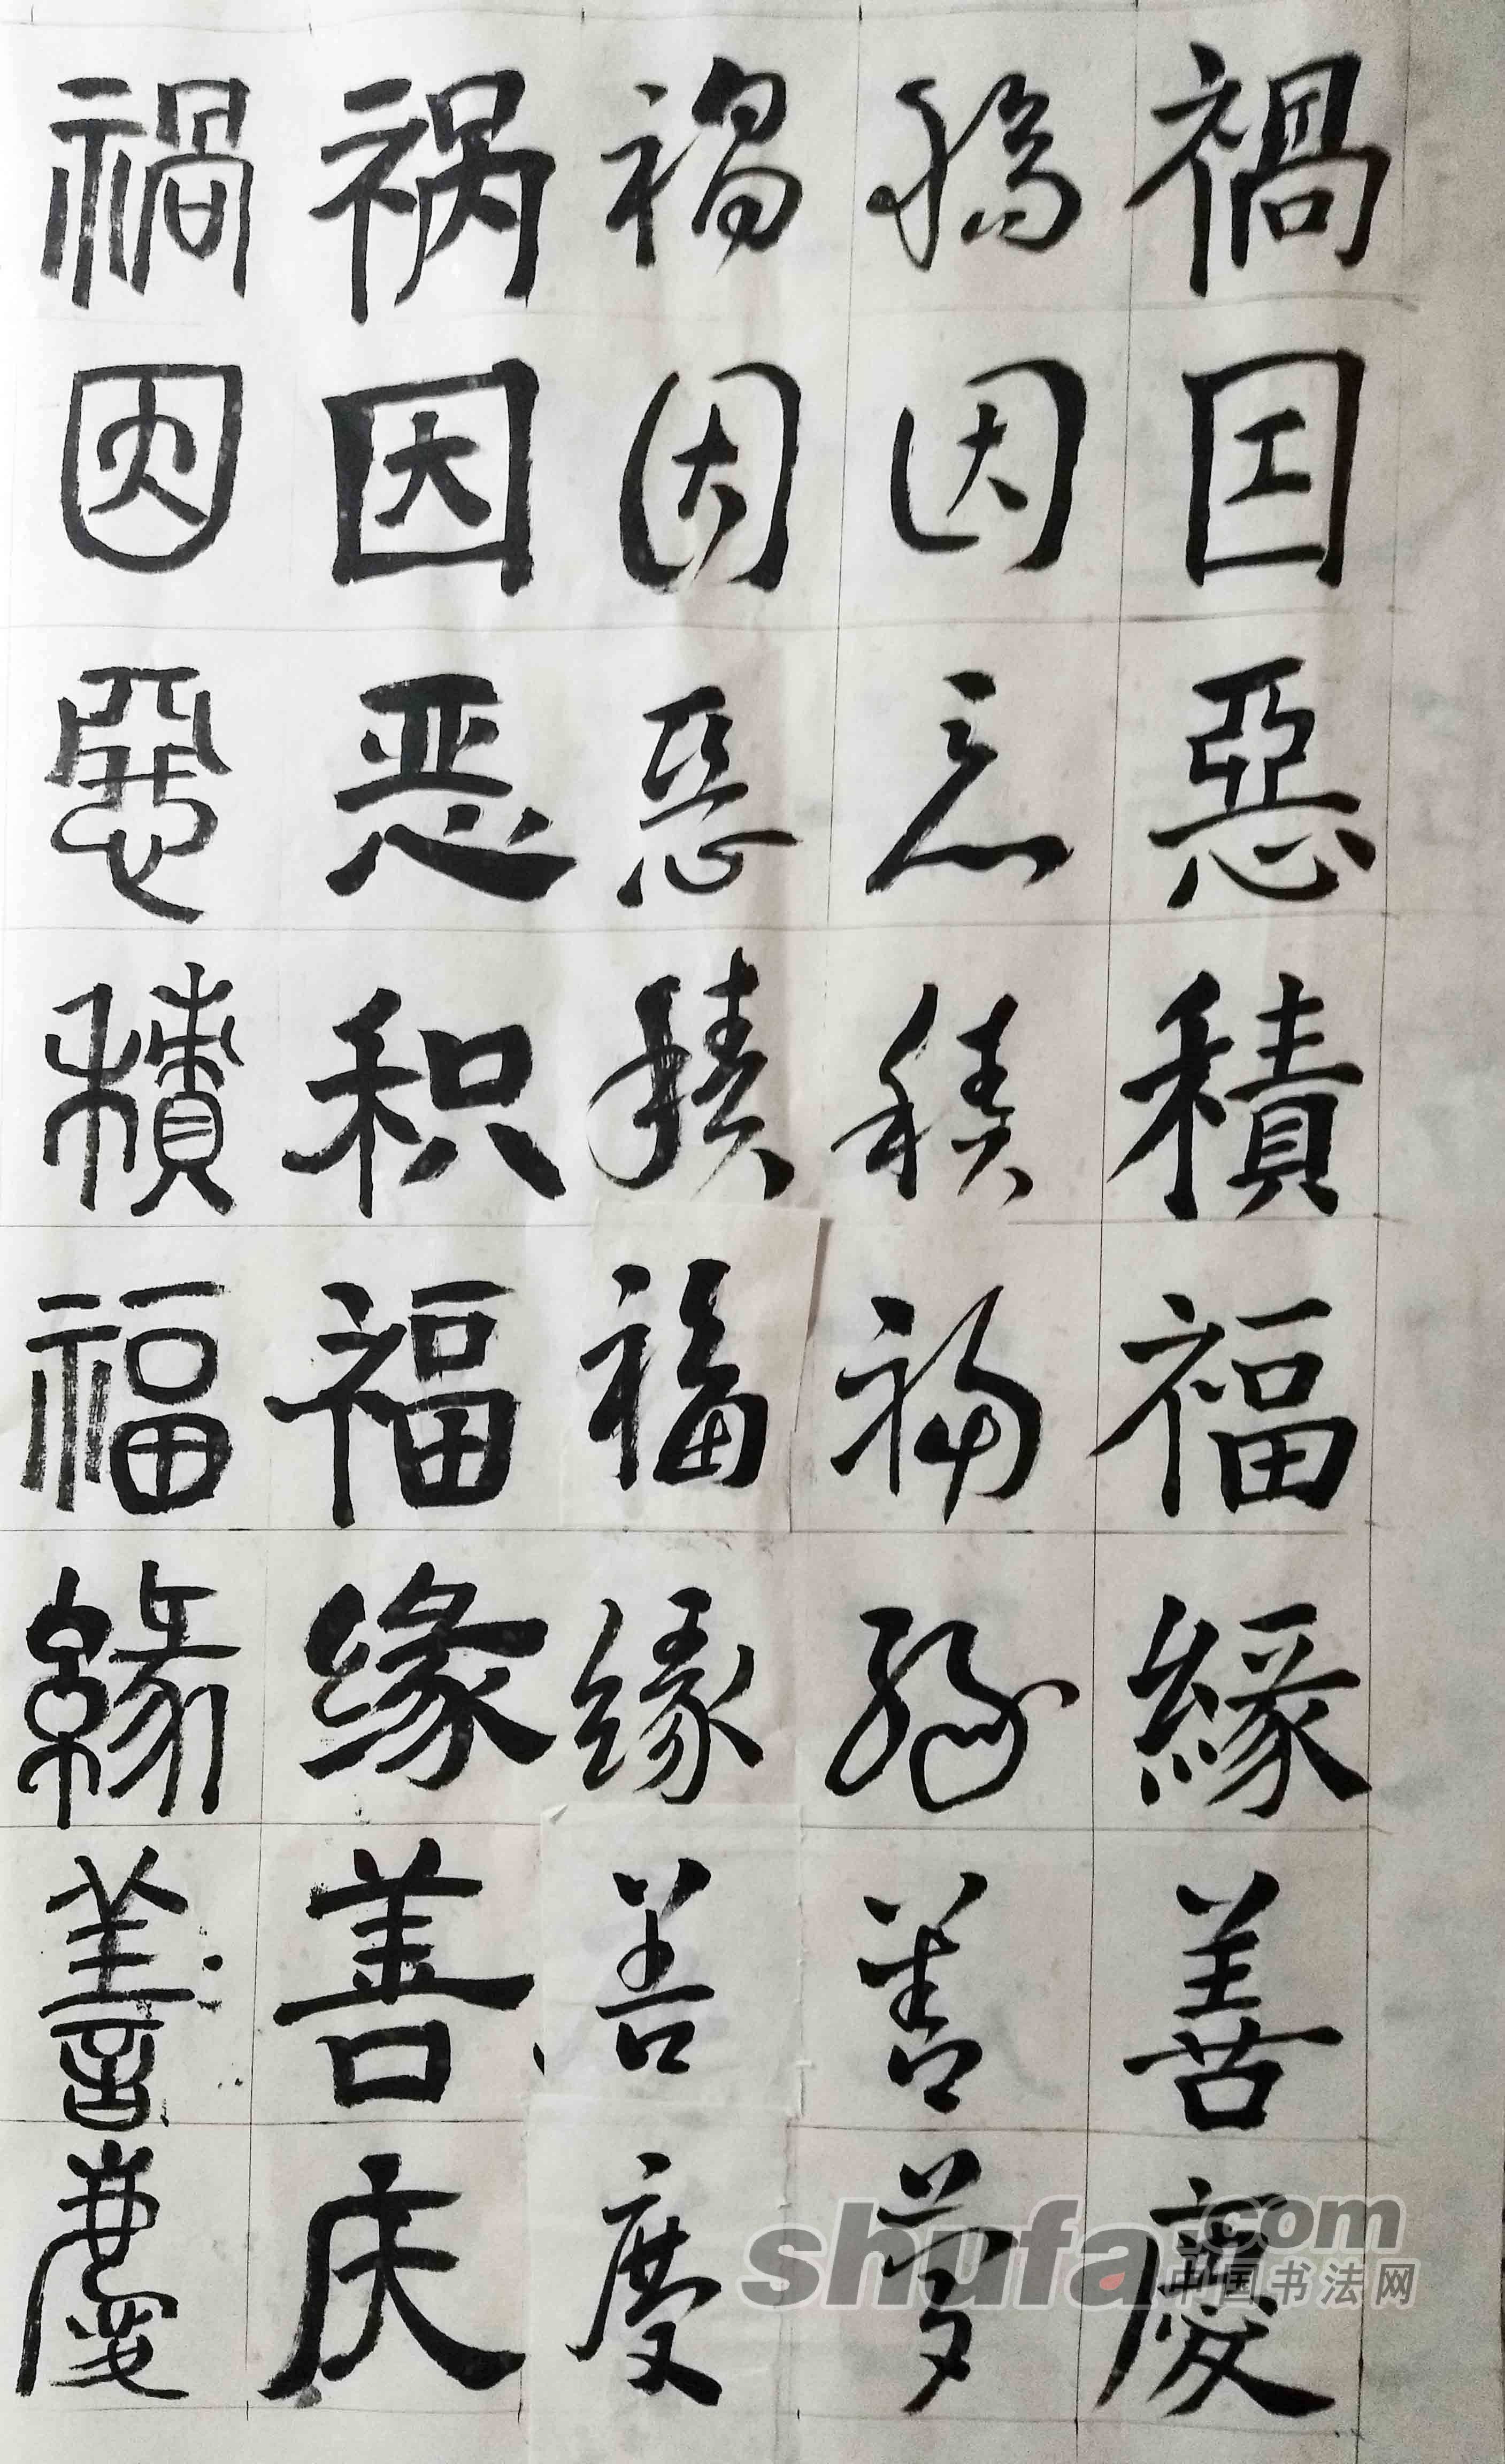 禍因惡積福緣善慶
禍因惡積福緣善慶
禍因惡積福缘善慶
祸因恶积福缘善庆
禍因惡積福緣善慶
shufa.com
中国书法网